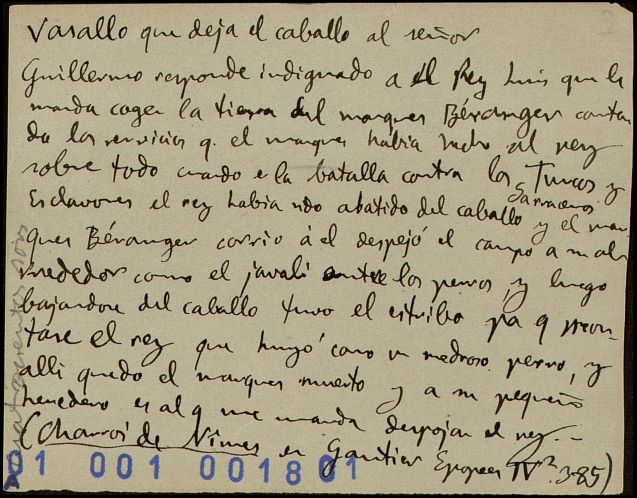 Vasallo que deja el caballo al señor
Guillermo responde indignado a el Rey Luis que le
manda coger la tierra del marques Béranger contan
do los servicios q. el marques habia hecho al rey
sobre todo cuando e la batalla contra los Turcos y
Sarracenos
Esclavones el rey habia sido abatido del caballo y el mar
ques Béranger corrio á el despejó el campo a su alr
rededor como el javali entre los perros, y luego
bajandose del caballo tuvo el estribo pa q mon-
tase el rey que huyó como un medroso perro, y
alli quedo el marques muerto y a su pequeño
heredero es al q me manda despojar el rey.-
(Charroi de Nimes en Gautier Epopees IV² 385)
01 001 001801
A